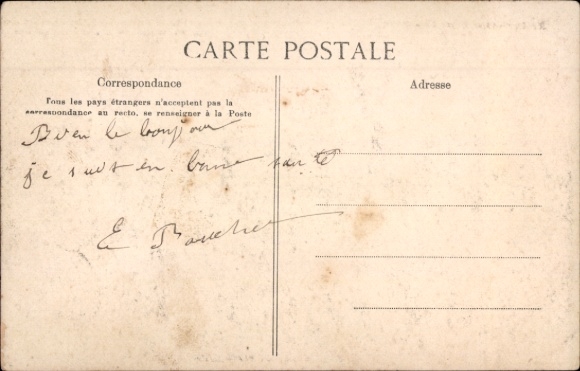 CARTE POSTALE
Correspondance
Tous les pays étrangers n'acceptent pas la
correspondance au recto, se renseigner à la Poste
Adresse
Bien le bonjour
je suis en bonne santé
E Boucher